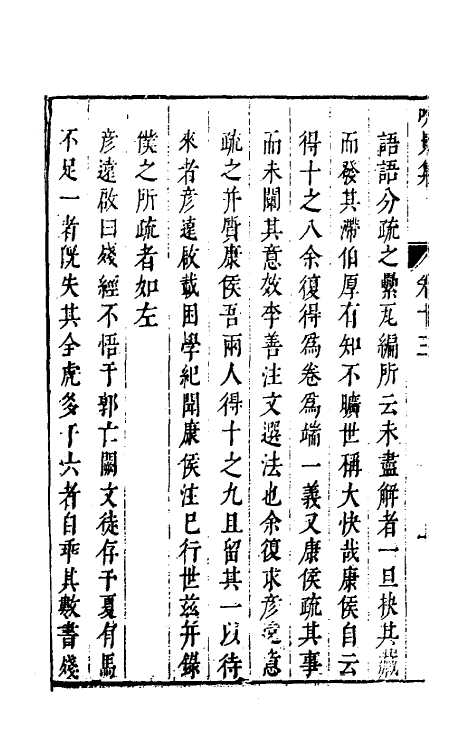 卷十三
語語分疏之纍瓦編所云未盡解者一旦抉其藏
而發其滯伯厚有知不曠世稱大快哉康侯自云
得十之八余復得為卷為端一義又康侯疏其事
而未闡其意效李善注文選法也余復求彥遠意
疏之并質康侯吾兩人得十之九且留其一以待
來者彥遠啟載困學紀聞康侯注已行世茲并錄
僕之所疏者如左
彥遠啟曰殘經不悟于郭亡闕文徒存于夏有馬
不足一者旣失其全虎多于六者自乖其數書殘